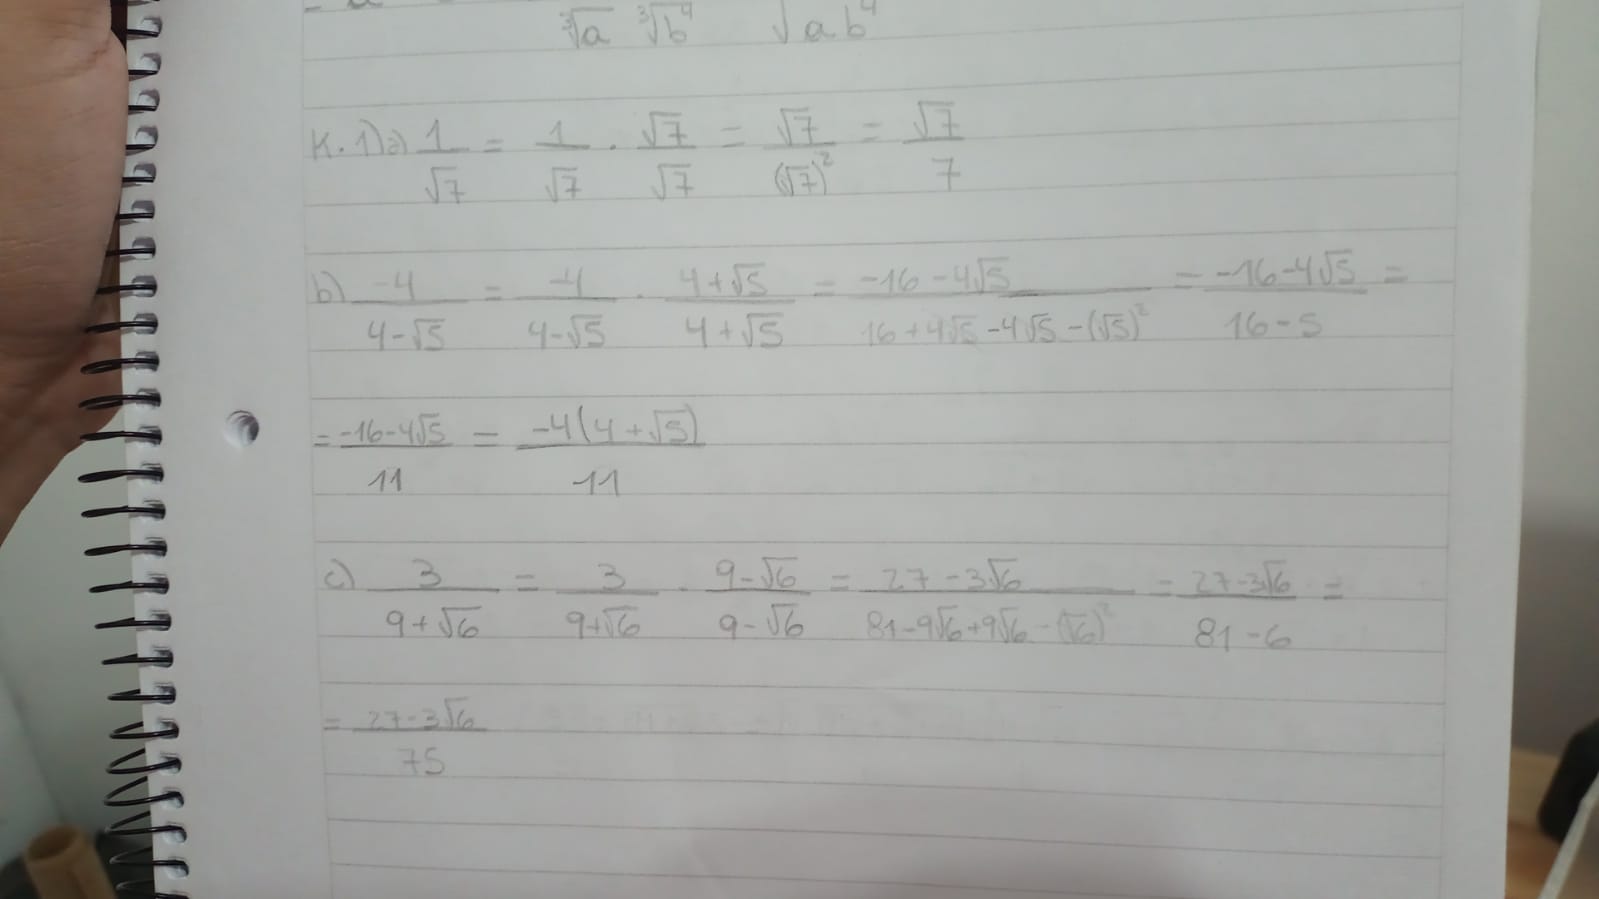 ∛a ∛b⁴ √ab⁴
K. 1) a) 1/√7 = 1/√7 · √7/√7 = √7/(√7)² = √7/7
b) -4/(4-√5) = -4/(4-√5) · (4+√5)/(4+√5) = (-16-4√5)/(16+4√5-4√5-(√5)²) = (-16-4√5)/(16-5) =
= (-16-4√5)/11 = -4(4+√5)/11
c) 3/(9+√6) = 3/(9+√6) · (9-√6)/(9-√6) = (27-3√6)/(81-9√6+9√6-(√6)²) = (27-3√6)/(81-6) =
= (27-3√6)/75